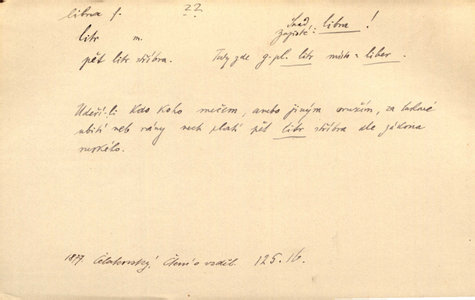 libra f. ??
Snad
zapisté: libra!
litr m.
pět litr stříbra. Tedy zde g. pl. litr místo = liber.
Udeří-li kdo koho mečem, anebo jiným oružím, za takové
ubití neb rány nech platí pět libr stříbra dle zákona
ruského.
1877 Čelakovský. Čtení o vzděl. 125.16.